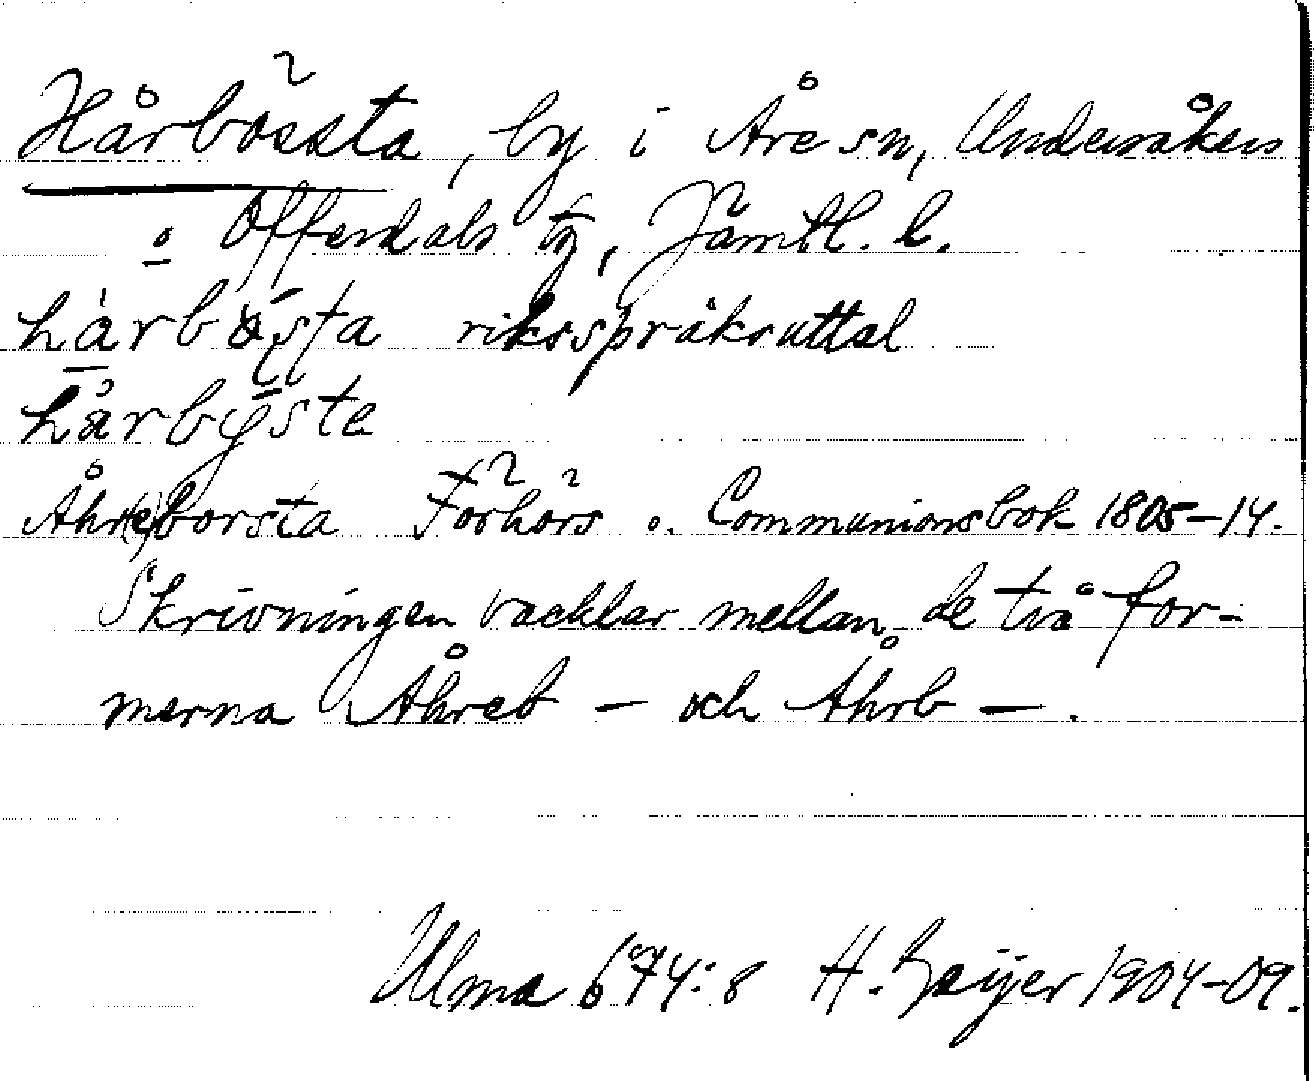 Hårbössta, by i Åre sn, Undersåkers
o Offerdals tg, Jämtl. l.
hårbösta riksspråksuttal
hårbyste
Åhr(e)borsta Förhörs o. Communionsbok 1805-14.
Skrivningen vacklar mellan de två for-
merna Åhreb – och Åhrb – .
Ulma 674:8 H. Geijer 1904-09.